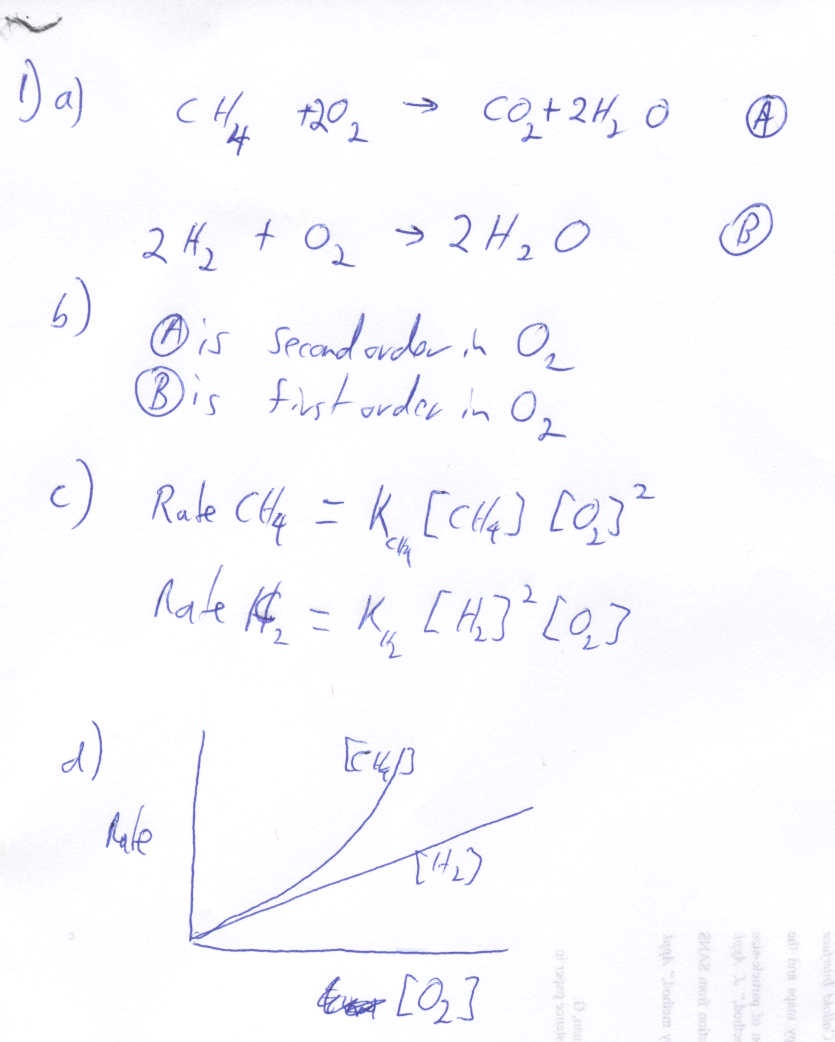 1) a) CH₄ +2O₂ → CO₂+2H₂O Ⓐ
2H₂ + O₂ → 2H₂O Ⓑ
b) Ⓐ is second order in O₂
Ⓑ is first order in O₂
c) Rate CH₄ = K_CH₄ [CH₄] [O₂]²
Rate H₂ = K_H₂ [H₂]² [O₂]
d) [CH₄]
Rate
[H₂]
[O₂]